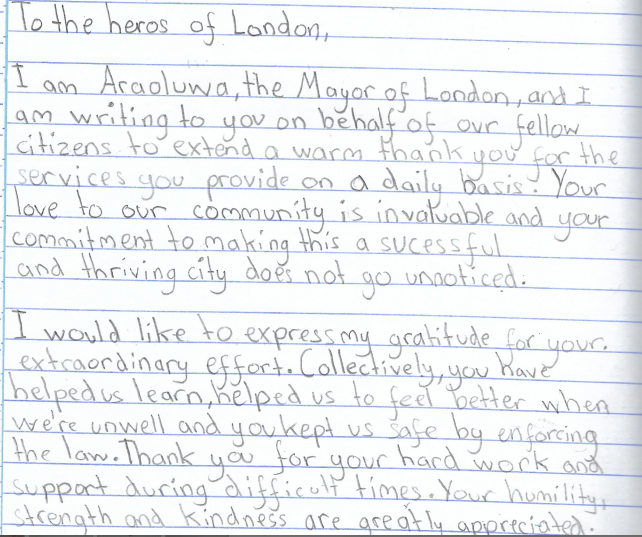 To the heros of London,
I am Araoluwa, the Mayor of London, and I
am writing to you on behalf of our fellow
citizens to extend a warm thank you for the
services you provide on a daily basis. Your
love to our community is invaluable and your
commitment to making this a sucessful
and thriving city does not go unnoticed.
I would like to express my gratitude for your.
extraordinary effort. Collectively, you have
helped us learn, helped us to feel better when
we're unwell and you kept us safe by enforcing
the law. Thank you for your hard work and
support during difficult times. Your humility,
strength and kindness are greatly appreciated.